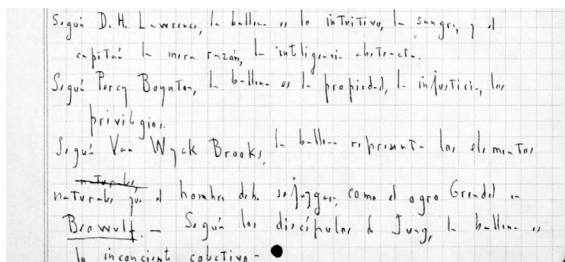 Según D. H. Lawrence, la ballena es lo intuitivo, la sangre, y el
capitán la mera razón, la inteligencia abstracta.
Según Percy Boynton, la ballena es la propiedad, la injusticia, los
privilegios.
Según Van Wyck Brooks, la ballena representa los elementos
naturales
naturales que el hombre debe sojuzgar, como el ogro Grendel en
Beowulf. — Según los discípulos de Jung, la ballena es
lo inconscient colectivo -